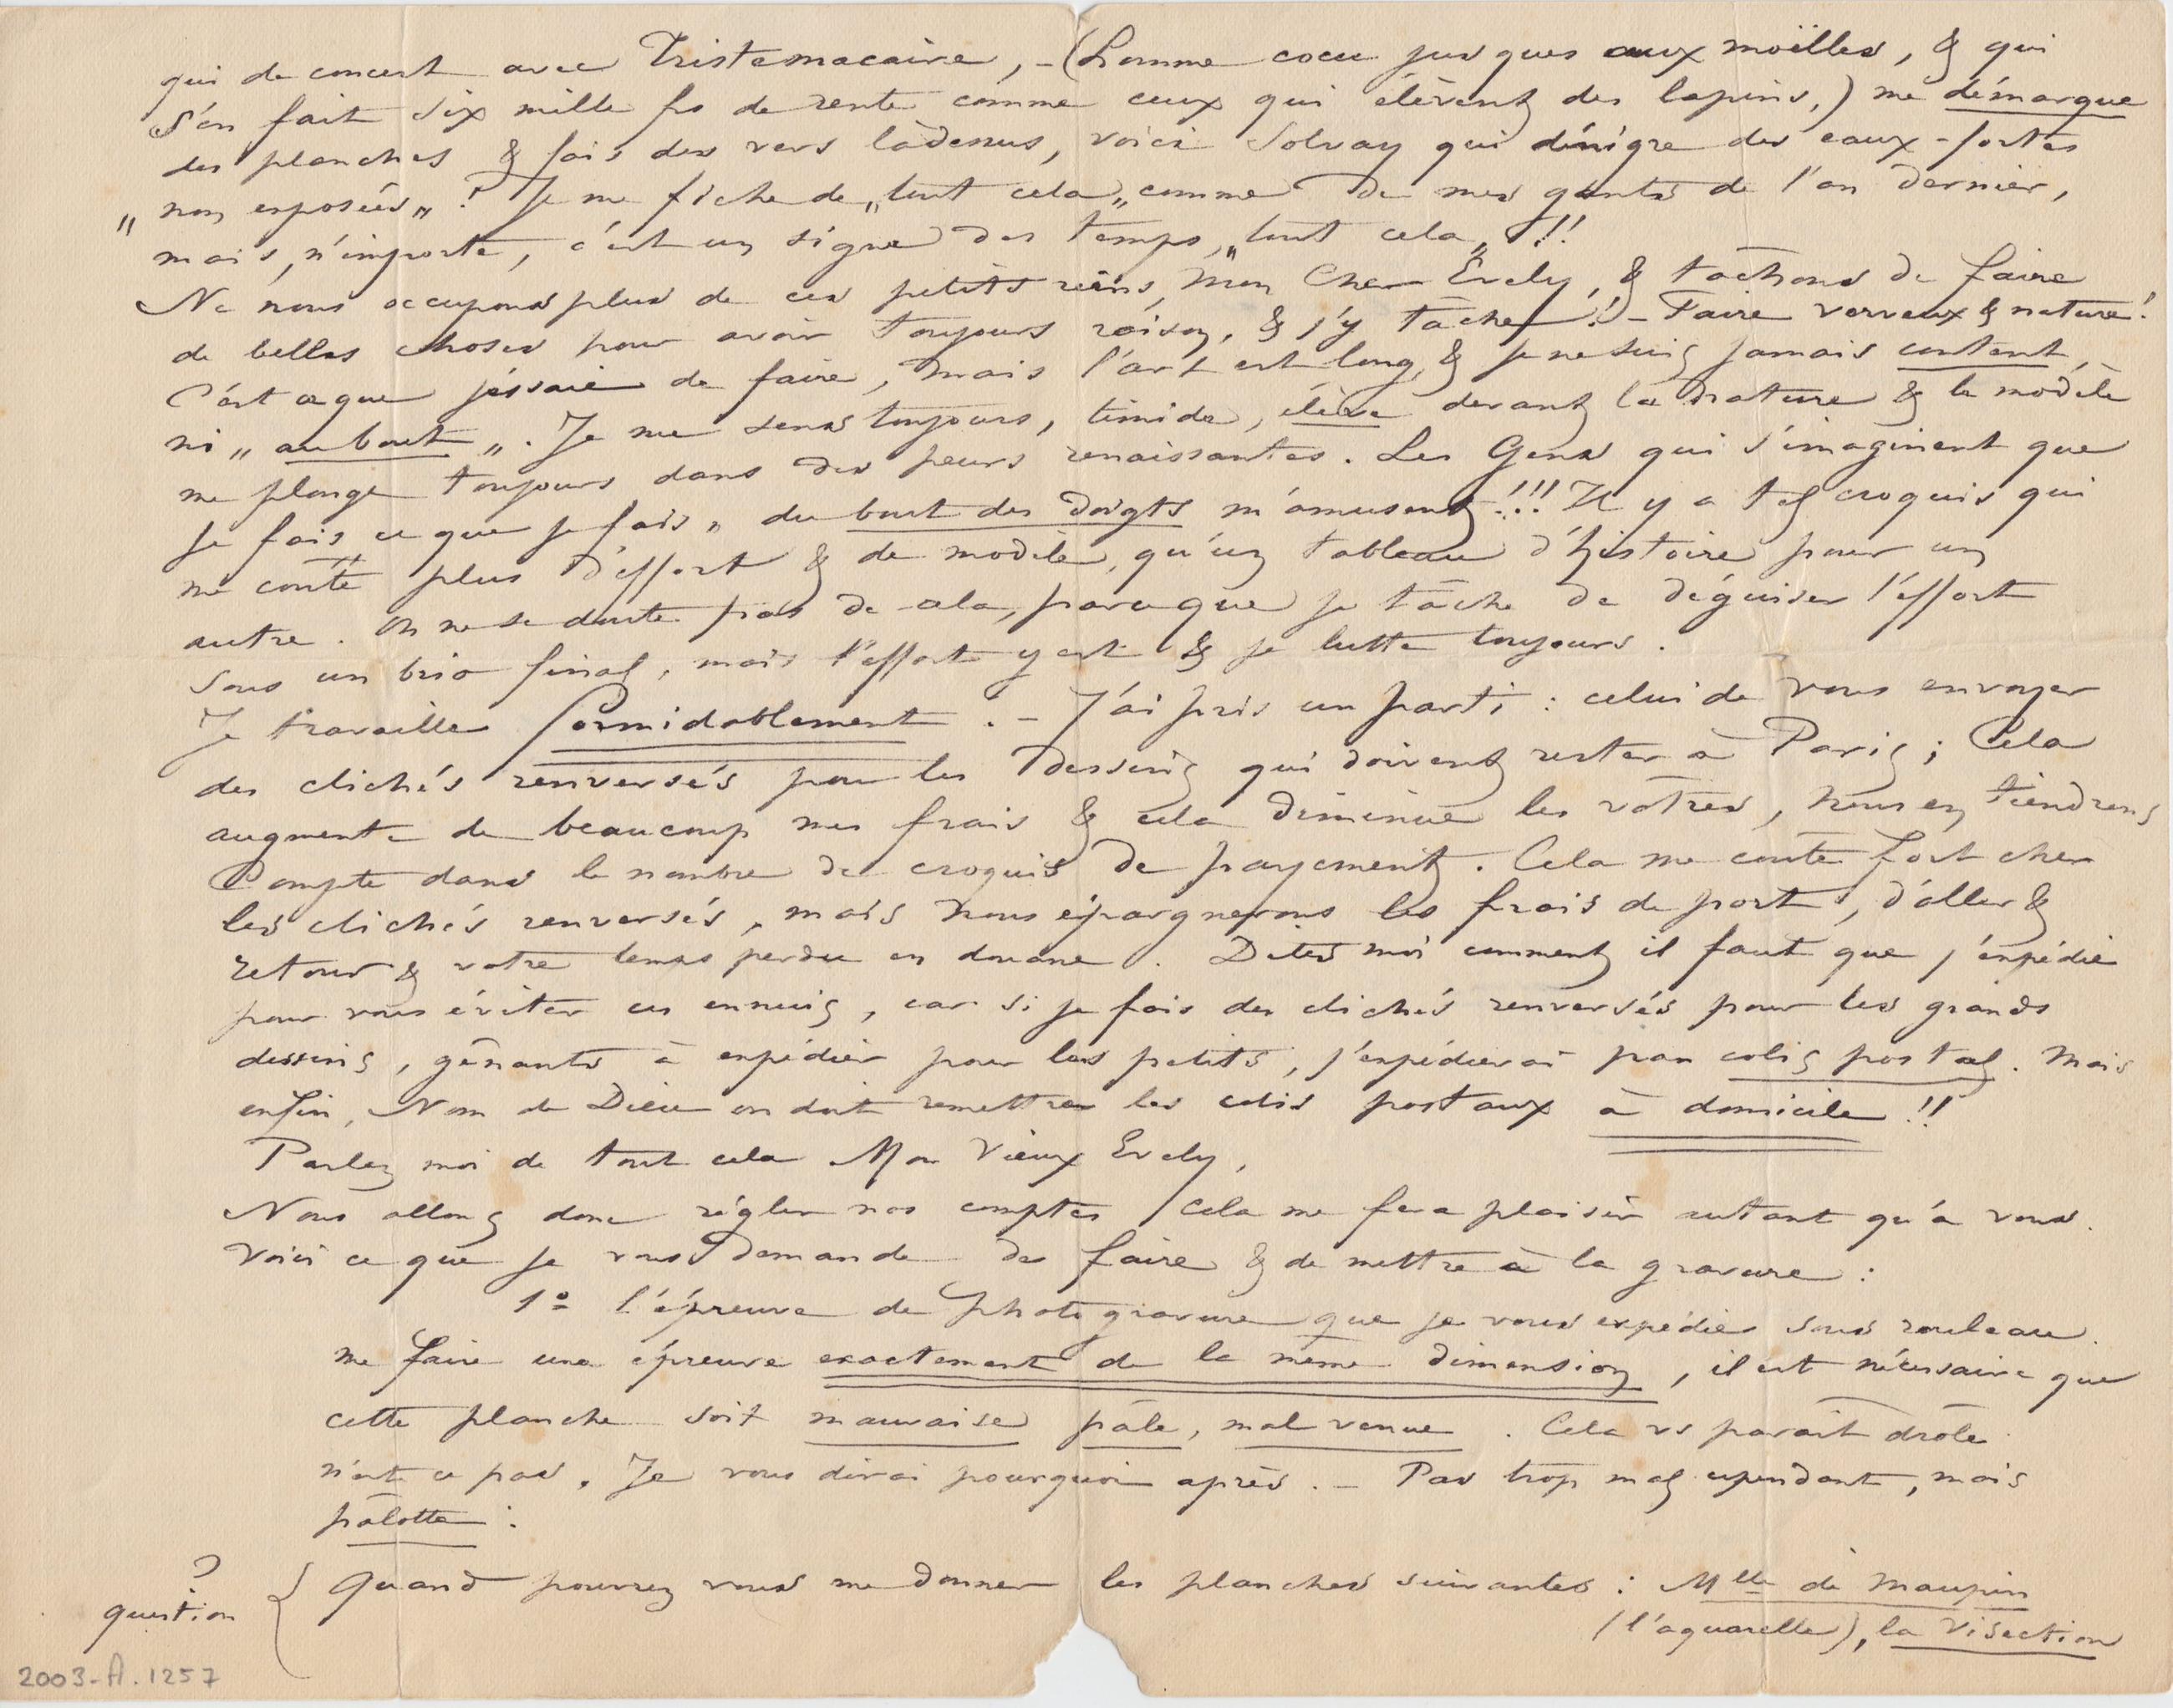 qui de concert avec Tristemacaire, – (homme cocu jusques aux moëlles, & qui
s'en fait six mille frs de rente comme ceux qui élèvent des lapins,) me démarque
des planches & fais des vers làdessus, voici Solvay qui dénigre des eaux-fortes
„ non exposées „ ! Je me fiche de „ tout cela „ comme de mes gants de l'an dernier,
mais, n'importe, c'est un signe des temps, „ tout cela „ !!!
Ne nous occupons plus de ces petits riens, Mon Cher Evely, & tâchons de faire
de belles choses pour avoir toujours raison, & j'y tâche! !– Faire nerveux & nature!
C'est ce que j'éssaie de faire, mais l'art est long, & je ne suis jamais content,
ni „ au bout „. Je me sens toujours, timide, élève devant la nature & le modèle
me plonge toujours dans des peurs renaissantes. Les Gens qui s'imaginent que
je fais ce que je fais „ du bout des doigts m'amusent!!! Il y a tel croquis qui
me coute plus d'effort & de modèle, qu'un tableau d'histoire pour un
autre. On ne se doute pas de cela, parceque je tâche de déguiser l'effort
sous un brio final, mais l'effort y est & je lutte toujours.
Je travaille formidablement. – J'ai pris un parti : celui de vous envoyer
des clichés renversés pour les dessins qui doivent rester à Paris ; Cela
augmente de beaucoup mes frais & cela diminue les vôtres, nous en tiendrons
Compte dans le nombre de croquis de payement. Cela me coute fort cher
les clichés renversés, mais nous épargnerons les frais de port, d'aller &
retour & votre temps perdu en douane. Dites moi comment il faut que j'expédie
pour vous éviter ces ennuis, car si je fais des clichés renversés pour les grands
dessins, gênants à expédier pour les petits, j'expédierai par colis postal. Mais
enfin, Nom de Dieu on doit remettre les colis postaux à domicile !!
Parlez moi de tout cela Mon Vieux Evely,
Nous allons donc régler nos comptes Cela me fera plaisir autant qu'à vous.
Voici ce que je vous demande de faire & de mettre à la gravure :
1º l'épreuve de photogravure que je vous expédie sous rouleau.
me faire une épreuve exactement de la même dimension, il est nécessaire que
cette planche soit mauvaise pâle, mal venue. Cela vs parait drôle
n'est ce pas. Je vous dirai pourquoi après. – Pas trop mal cependant, mais
pâlotte :
?
question { Quand pourrez vous me donner les planches suivantes : Mlle de Maupin
(l'aquarelle), la Visection
2003-A.1257